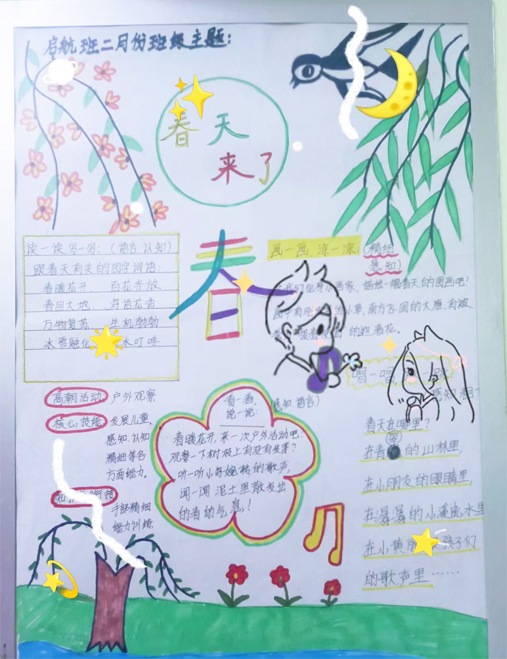 启航班二月份班级主题:
春天
来了
读一读另一另:(语言 认知)
跟春天有关的四字词语:
春暖花开 百花齐放
春回大地 鸟语花香
万物复苏 生机勃勃
冰雪融化 水叮咚
春
画一画,涂一涂
精细
感知
高潮活动 户外观察
核心技能 发展儿童
感知、认知
精细等各
方面能力。
手部精细
能力训练
看一看,
说一说:
感知、语言)
春暖花开,来一次户外活动吧!
观察一下树枝上有没有发芽?
听一听小鸟婉转的歌声,
闻一闻泥土里散发出
的春的气息!
唱一唱
春天在哪里?
在青 的山林里,
在小朋友的眼睛里,
在潺潺的小溪流水里
在小黄 孩子们
的歌声里……